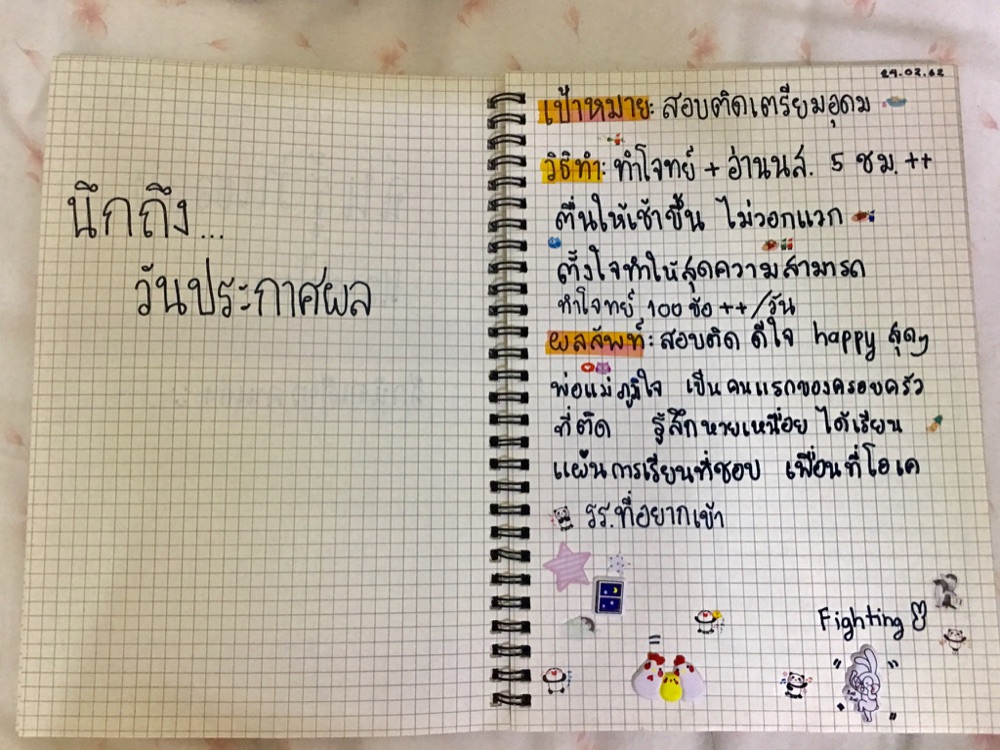 นึกถึง...
วันประกาศผล
29.02.62
เป้าหมาย: สอบติดเตรียมอุดม
วิธีทำ: ทำโจทย์ + อ่านนส. 5 ชม. ++
ตื่นให้เช้าขึ้น ไม่วอกแวก
ตั้งใจทำให้สุดความสามารถ
ทำโจทย์ 100 ข้อ ++/วัน
ผลลัพท์: สอบติด ดีใจ happy สุดๆ
พ่อแม่ภูมิใจ เป็นคนแรกของครอบครัว
ที่ติด รู้สึกหายเหนื่อย ได้เรียน
แผนการเรียนที่ชอบ เพื่อนที่โอเค
รร.ที่อยากเข้า
Fighting